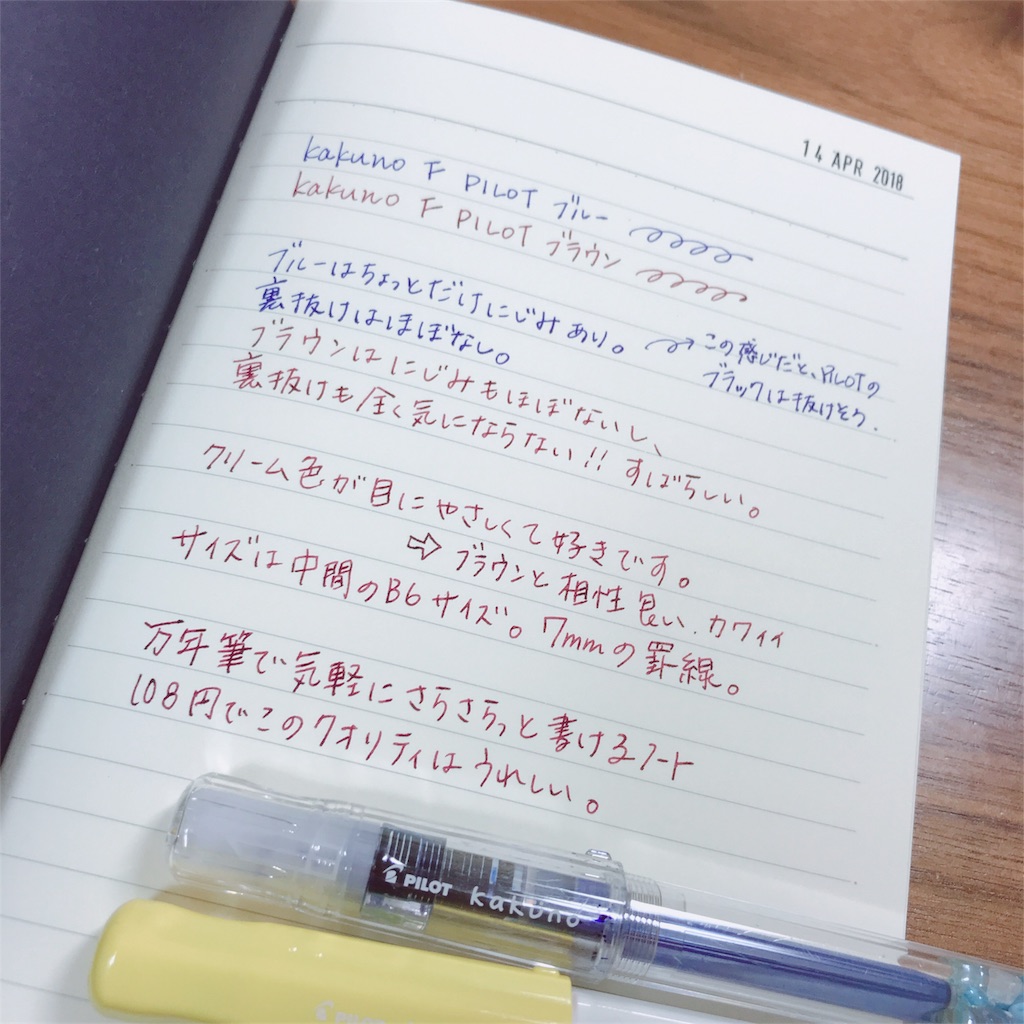 14 APR 2018
kakuno F PILOT ブルー
kakuno F PILOT ブラウン
ブルーはちょっとだけにじみあり。
裏抜けはほぼなし。
→この感じだと、PILOTの
ブラックは抜けそう.
ブラウンはにじみもほぼないし、
裏抜けも全く気にならない!! すばらしい。
クリーム色が目にやさしくて好きです。
⇨ ブラウンと相性良い. カワイイ
サイズは中間のB6サイズ。7mmの罫線。
万年筆で気軽にさらさらっと書けるノート
108円でこのクオリティはうれしい。
PILOT kakuno
PILOT